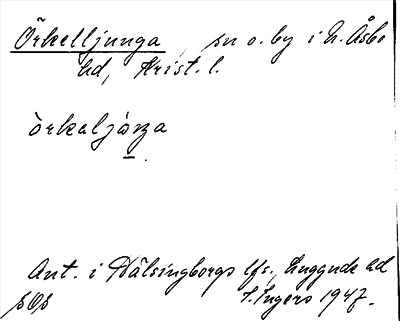 Örkelljunga, sn o. by i N. Åsbo
hd, Krist. l.
örkaljóŋa
Ant. i Hälsingborgs lfs., Luggude hd
sOp S. Ingers 1947.